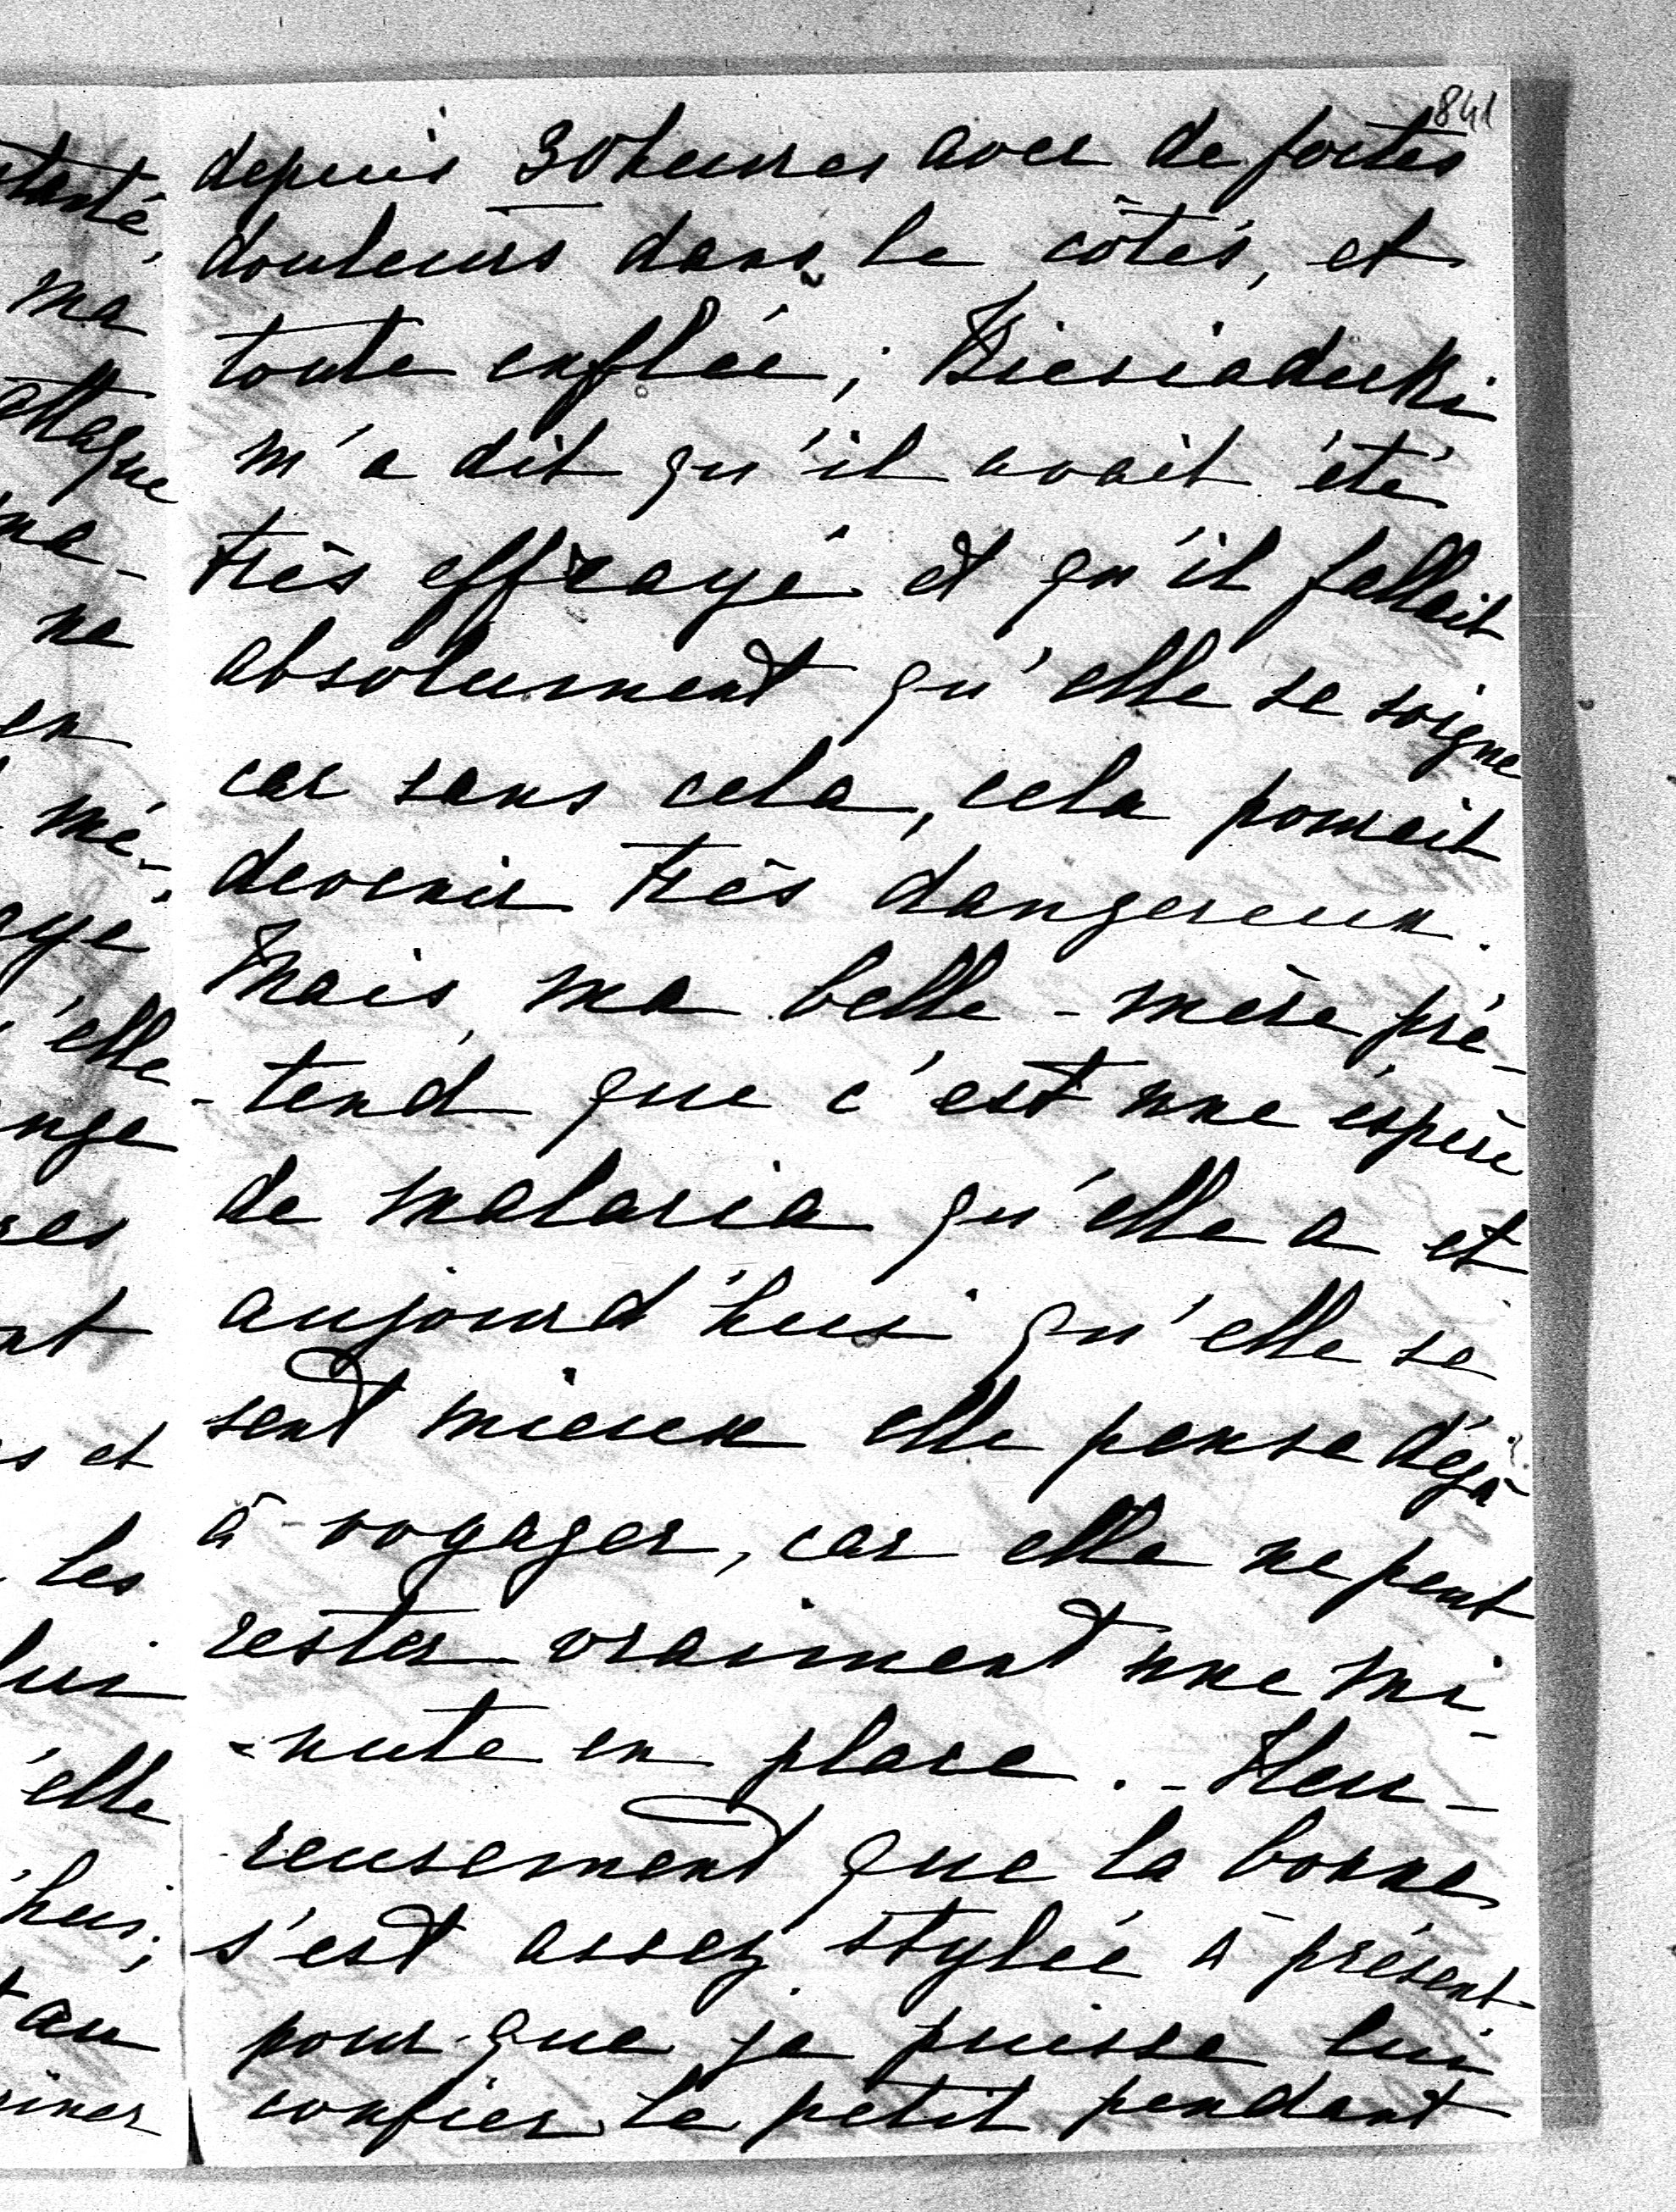 841
depuis 30 heures avec de fortes
douleurs dans le côtés, et
toute enflée; Biesiadecki
m'a dit qu'il avait été
très effrayé et qu'il fallait
absolument qu'elle se soigne
car sans cela, cela pourait
devenir très dangereux.
Mais, ma belle-mère pré-
-tend que c'est une éspèce
de malaria qu'elle a et
aujourd'hui qu'elle se
sent mieux elle pense déjà
à voyager, car elle ne peut
rester vraiment une mi-
-nute en place. - Heu-
-reusement que la bonne
s'est assez stylée à présent
pour que je puisse lui
confier le petit pendant
ma
attague
ne
en
mé-
'elle
et
les
lui
'elle
au